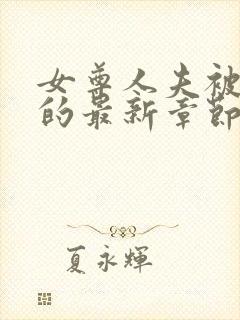 女尊人夫被
的最新章節
夏永輝